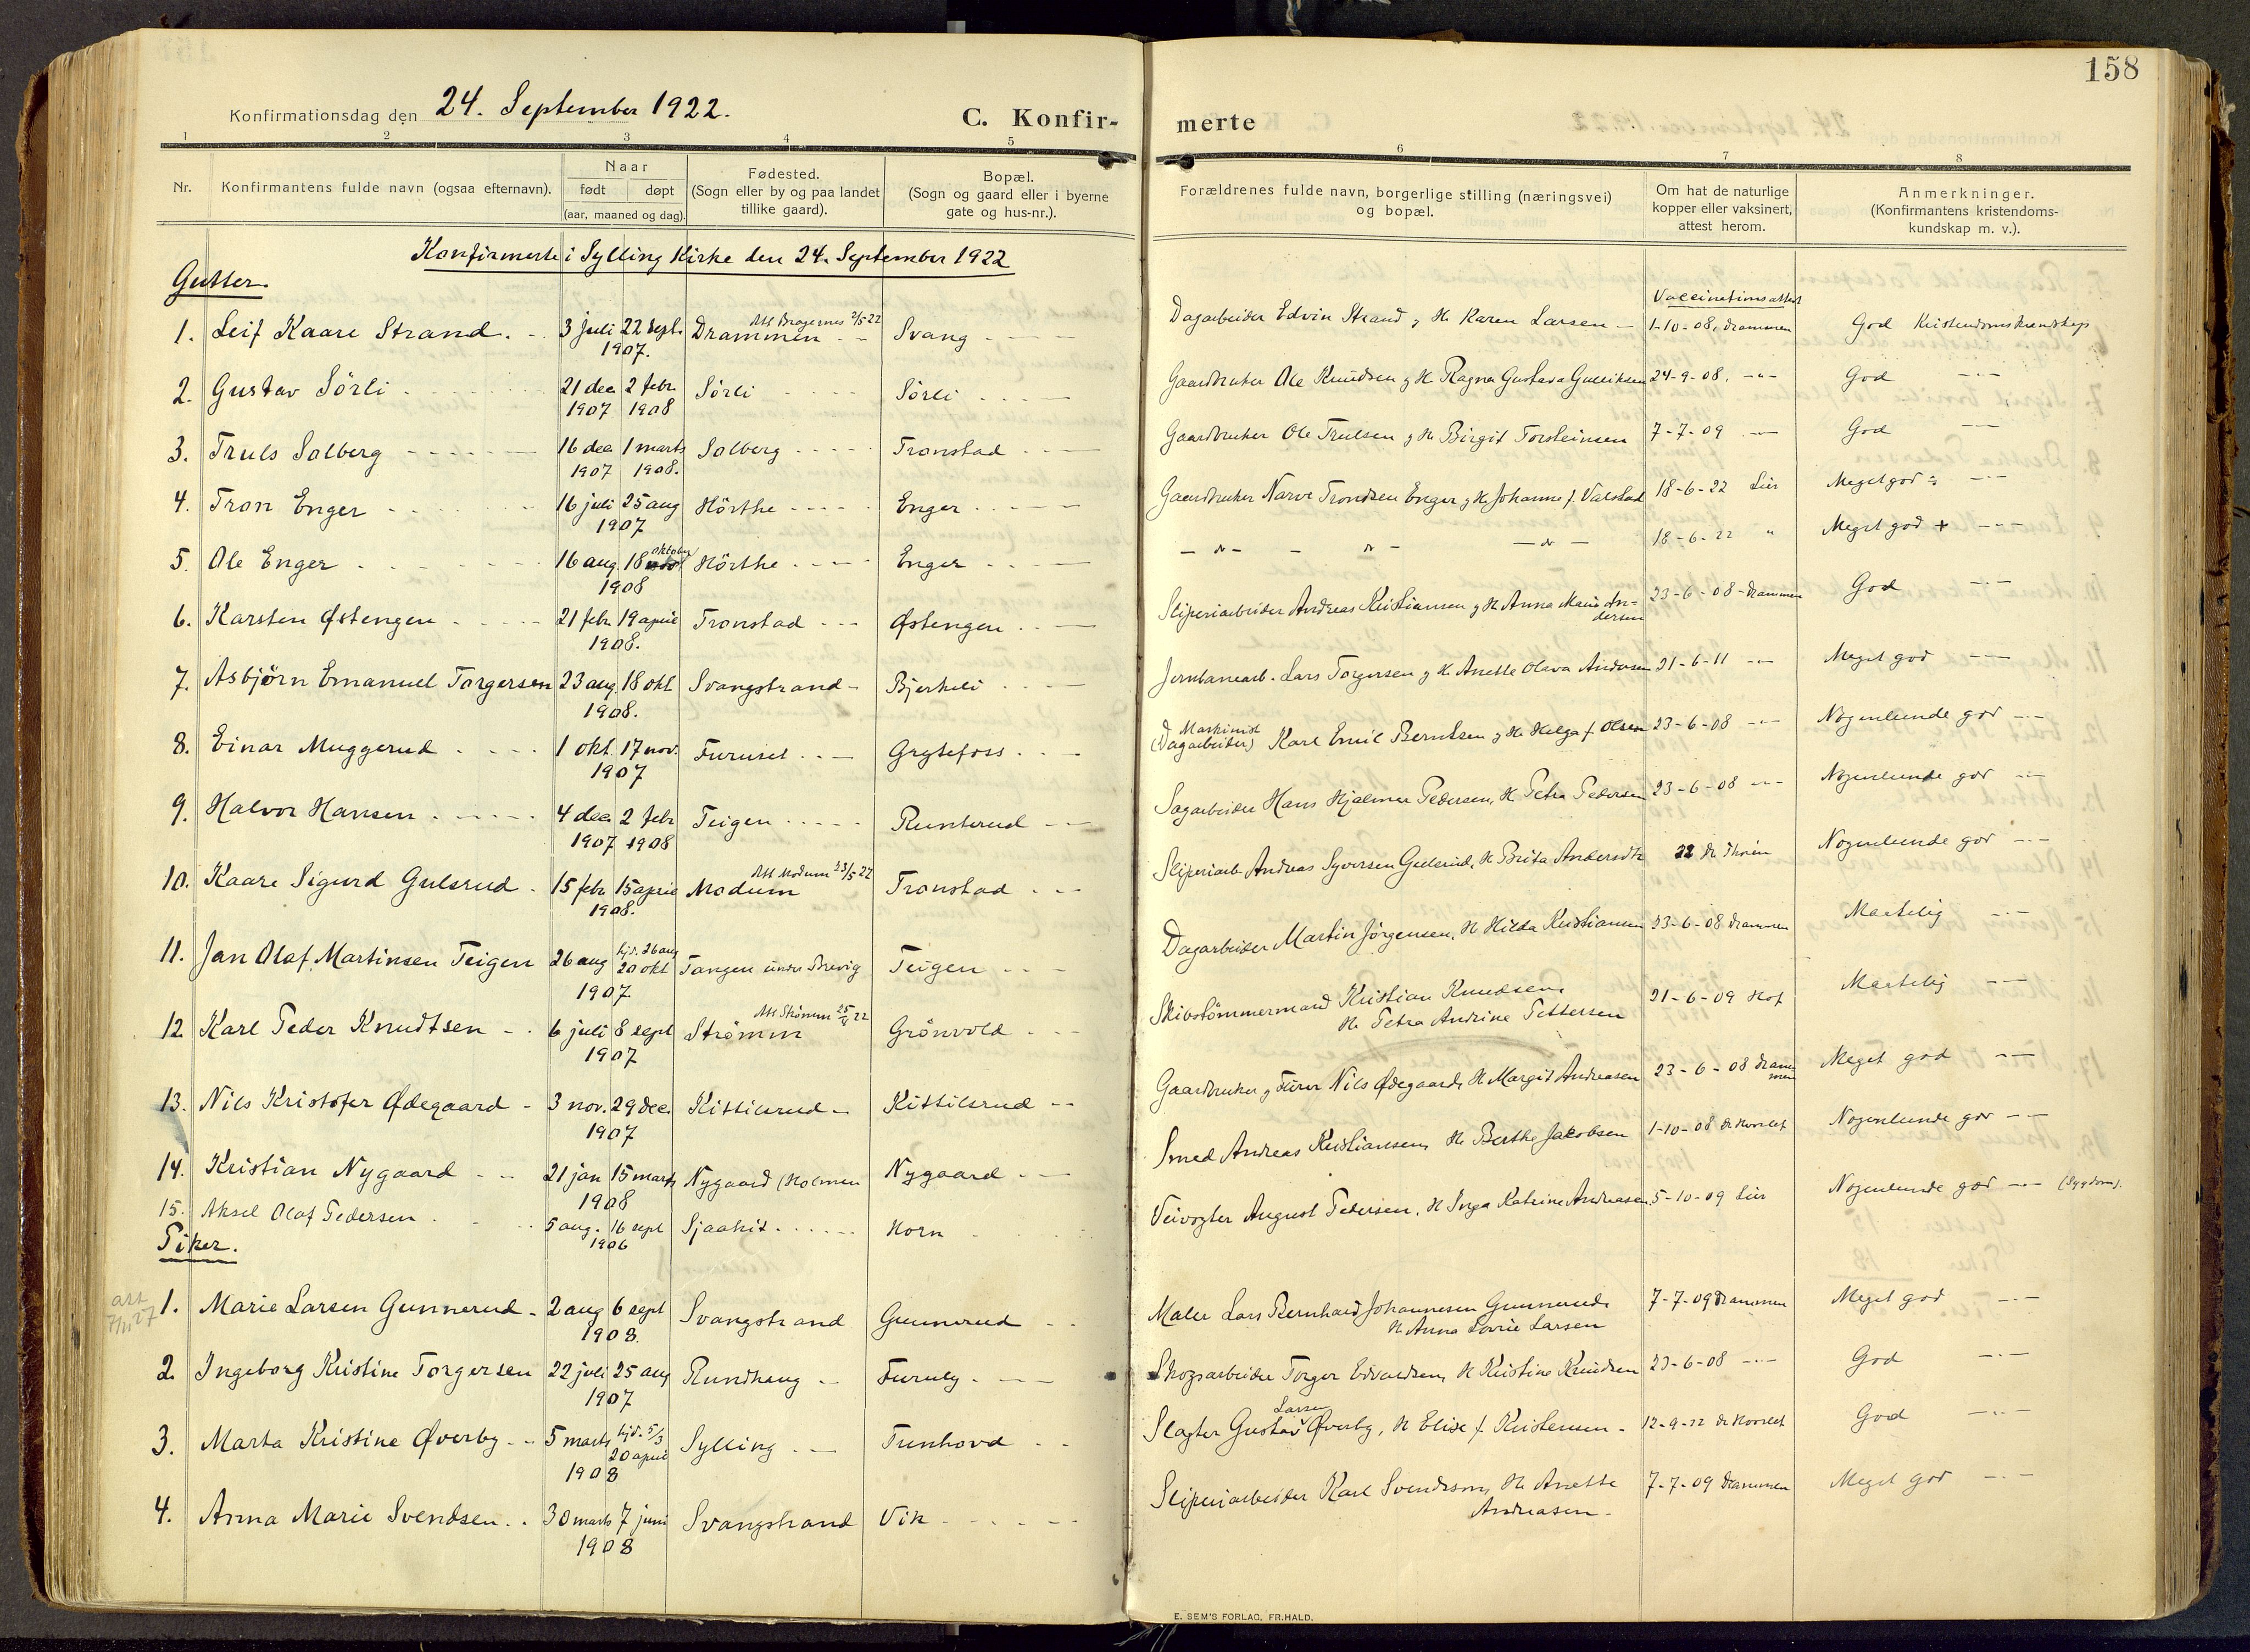 158
Konfirmationsdag den 24. September 1922.
C. Konfirmerte
1 2 3 4 5 6 7 8
Nr.
Konfirmantens fulde navn (ogsaa efternavn).
Naar
født døpt
(aar, maaned og dag).
Fødested.
(Sogn eller by og paa landet
tillike gaard).
Bopæl.
(Sogn og gaard eller i byerne
gate og hus-nr.).
Forældrenes fulde navn, borgerlige stilling (næringsvei)
og bopæl.
Om hat de naturlige
kopper eller vaksinert,
attest herom.
Anmerkninger.
(Konfirmantens kristendoms-
kundskap m. v.).
Konfirmerte i Sylling Kirke den 24. September 1922
Gutter.
Vaccinationsattest
1. Leif Kaare Strand. 3 juli 22 sept. 1907. Att Bragernes 2/5 22 Drammen Svang Dagarbeider Edvin Strand og H. Karen Larsen 1-10-08, Drammen God Kristendomskundskap
2. Gustav Sörli 21 dec 1907 2 febr 1908 Sörli Sörli Gaardbruker Ole Knudsen og H. Ragna Gustava Gulliksen 24-9-08. -"- God -"-
3. Truls Solberg 16 dec 1907 1 marts 1908. Solberg Tronstad Gaardbruker Ole Trulsen og H. Birgit Torsteinsen 7-7-09 -"- God -"-
4. Tron Enger 16 juli 25 aug 1907 Hörthe Enger Gaardbruker Narve Trondsen Enger og H. Johanne f. Valstad 18-6-22 Lier Meget god -"-
5. Ole Enger 16 aug. 18 oktober 1908 Hörthe Enger -"- -"- -"- 18-6-22 " Meget god + -"-
6. Karsten Østengen 21 febr. 19 april 1908. Tronstad Østengen Sliperiarbeider Andreas Kristiansen og H. Anna Marie An-
dersen 23-6-08 - Drammen God -"-
7. Asbjörn Emanuel Torgersen 23 aug. 18 okt 1908. Svangstrand Bjerkeli Jernbanearb. Lars Torgersen og H. Anette Olava Andersen 21-6-11 -"- Meget god -"-
8. Einar Muggerud 1 okt. 17 nov. 1907 Furuset Grytefoss Maskinist
(Dagarbeider) Karl Emil Berntsen og H. Helga f. Olsen 23-6-08 -"- Nogenlunde god -"-
9. Halvor Hansen 4 dec 1907 2 febr 1908 Teigen Runterud Sagarbeider Hans Hjalmar Pedersen, H. Petra Pedersen 23-6-08 -"- Nogenlunde god -"-
10. Kaare Sigurd Gulsrud 15 febr 15 april 1908. Att Modum 23/5 22 Modum Tronstad Sliperiarb. Andreas Syversen Gulsrud, H. Brita Andersdtr 22 Dr Thorén Nogenlunde god -"-
11. Jan Olaf Martinsen Teigen 26 aug hjd. 26 aug 20 okt 1907 Tangen under Brevig Teigen Dagarbeider Martin Jörgensen, H. Hilda Kristiansen 23-6-08 Drammen Maatelig -"-
12. Karl Peder Knudtsen 6 juli 8 sept 1907 Att Strömm 25/4 22 Strömm Grönvold Skibstömmermand Kristian Knudsen,
H. Petra Andrine Pettersen 21-6-09 Hof Maatelig -"-
13. Nils Kristofer Ødegaard 3 nov. 29 dec. 1907 Kittilsrud Kittilsrud Gaardbruker og Furer Nils Ødegaard, H. Margit Andreasen 23-6-08 Dram-
men Meget god -"-
14. Kristian Nygaard 21 jan 15 marts 1908 Nygaard (Holmen Nygaard Smed Andreas Kristiansen, H. Berthe Jakobsen 1-10-08 Dr Horslet Nogenlunde god -"-
15. Aksel Olaf Pedersen 5 aug. 16 sept 1906 Sjaahit Horn Veivogter August Pedersen, H. Inga Katrine Andreasen 5-10-09 Lier Nogenlunde god -"- (Sygdom).
Piker.
att 7/11 27
1. Marie Larsen Gunnerud 2 aug 6 sept 1908. Svangstrand Gunnerud Maler Lars Bernhard Johannesen Gunnerud,
H. Anna Lovise Larsen 7-7-09 Drammen Meget god -"-
2. Ingeborg Kristine Torgersen 22 juli 25 aug 1907 Rundhaug Furuly Skogsarbeider Torger Edvardsen, H. Kristine Knudsen 23-6-08 -"- God -"-
3. Marta Kristine Øverby 5 marts hjd. 5/3 20 april 1908 Sylling Tunhovd Slagter Gustav Larsen Øverby, H. Elise f. Kristensen 12-9-22 Dr Horslet God -"-
4. Anna Marie Svendsen 30 marts 7 juni 1908 Svangstrand Vik Sliperiarbeider Karl Svendsen, H. Anette
Andreasen 7-7-09 Drammen Meget god -"-
E. SEM'S FORLAG, FR.HALD.